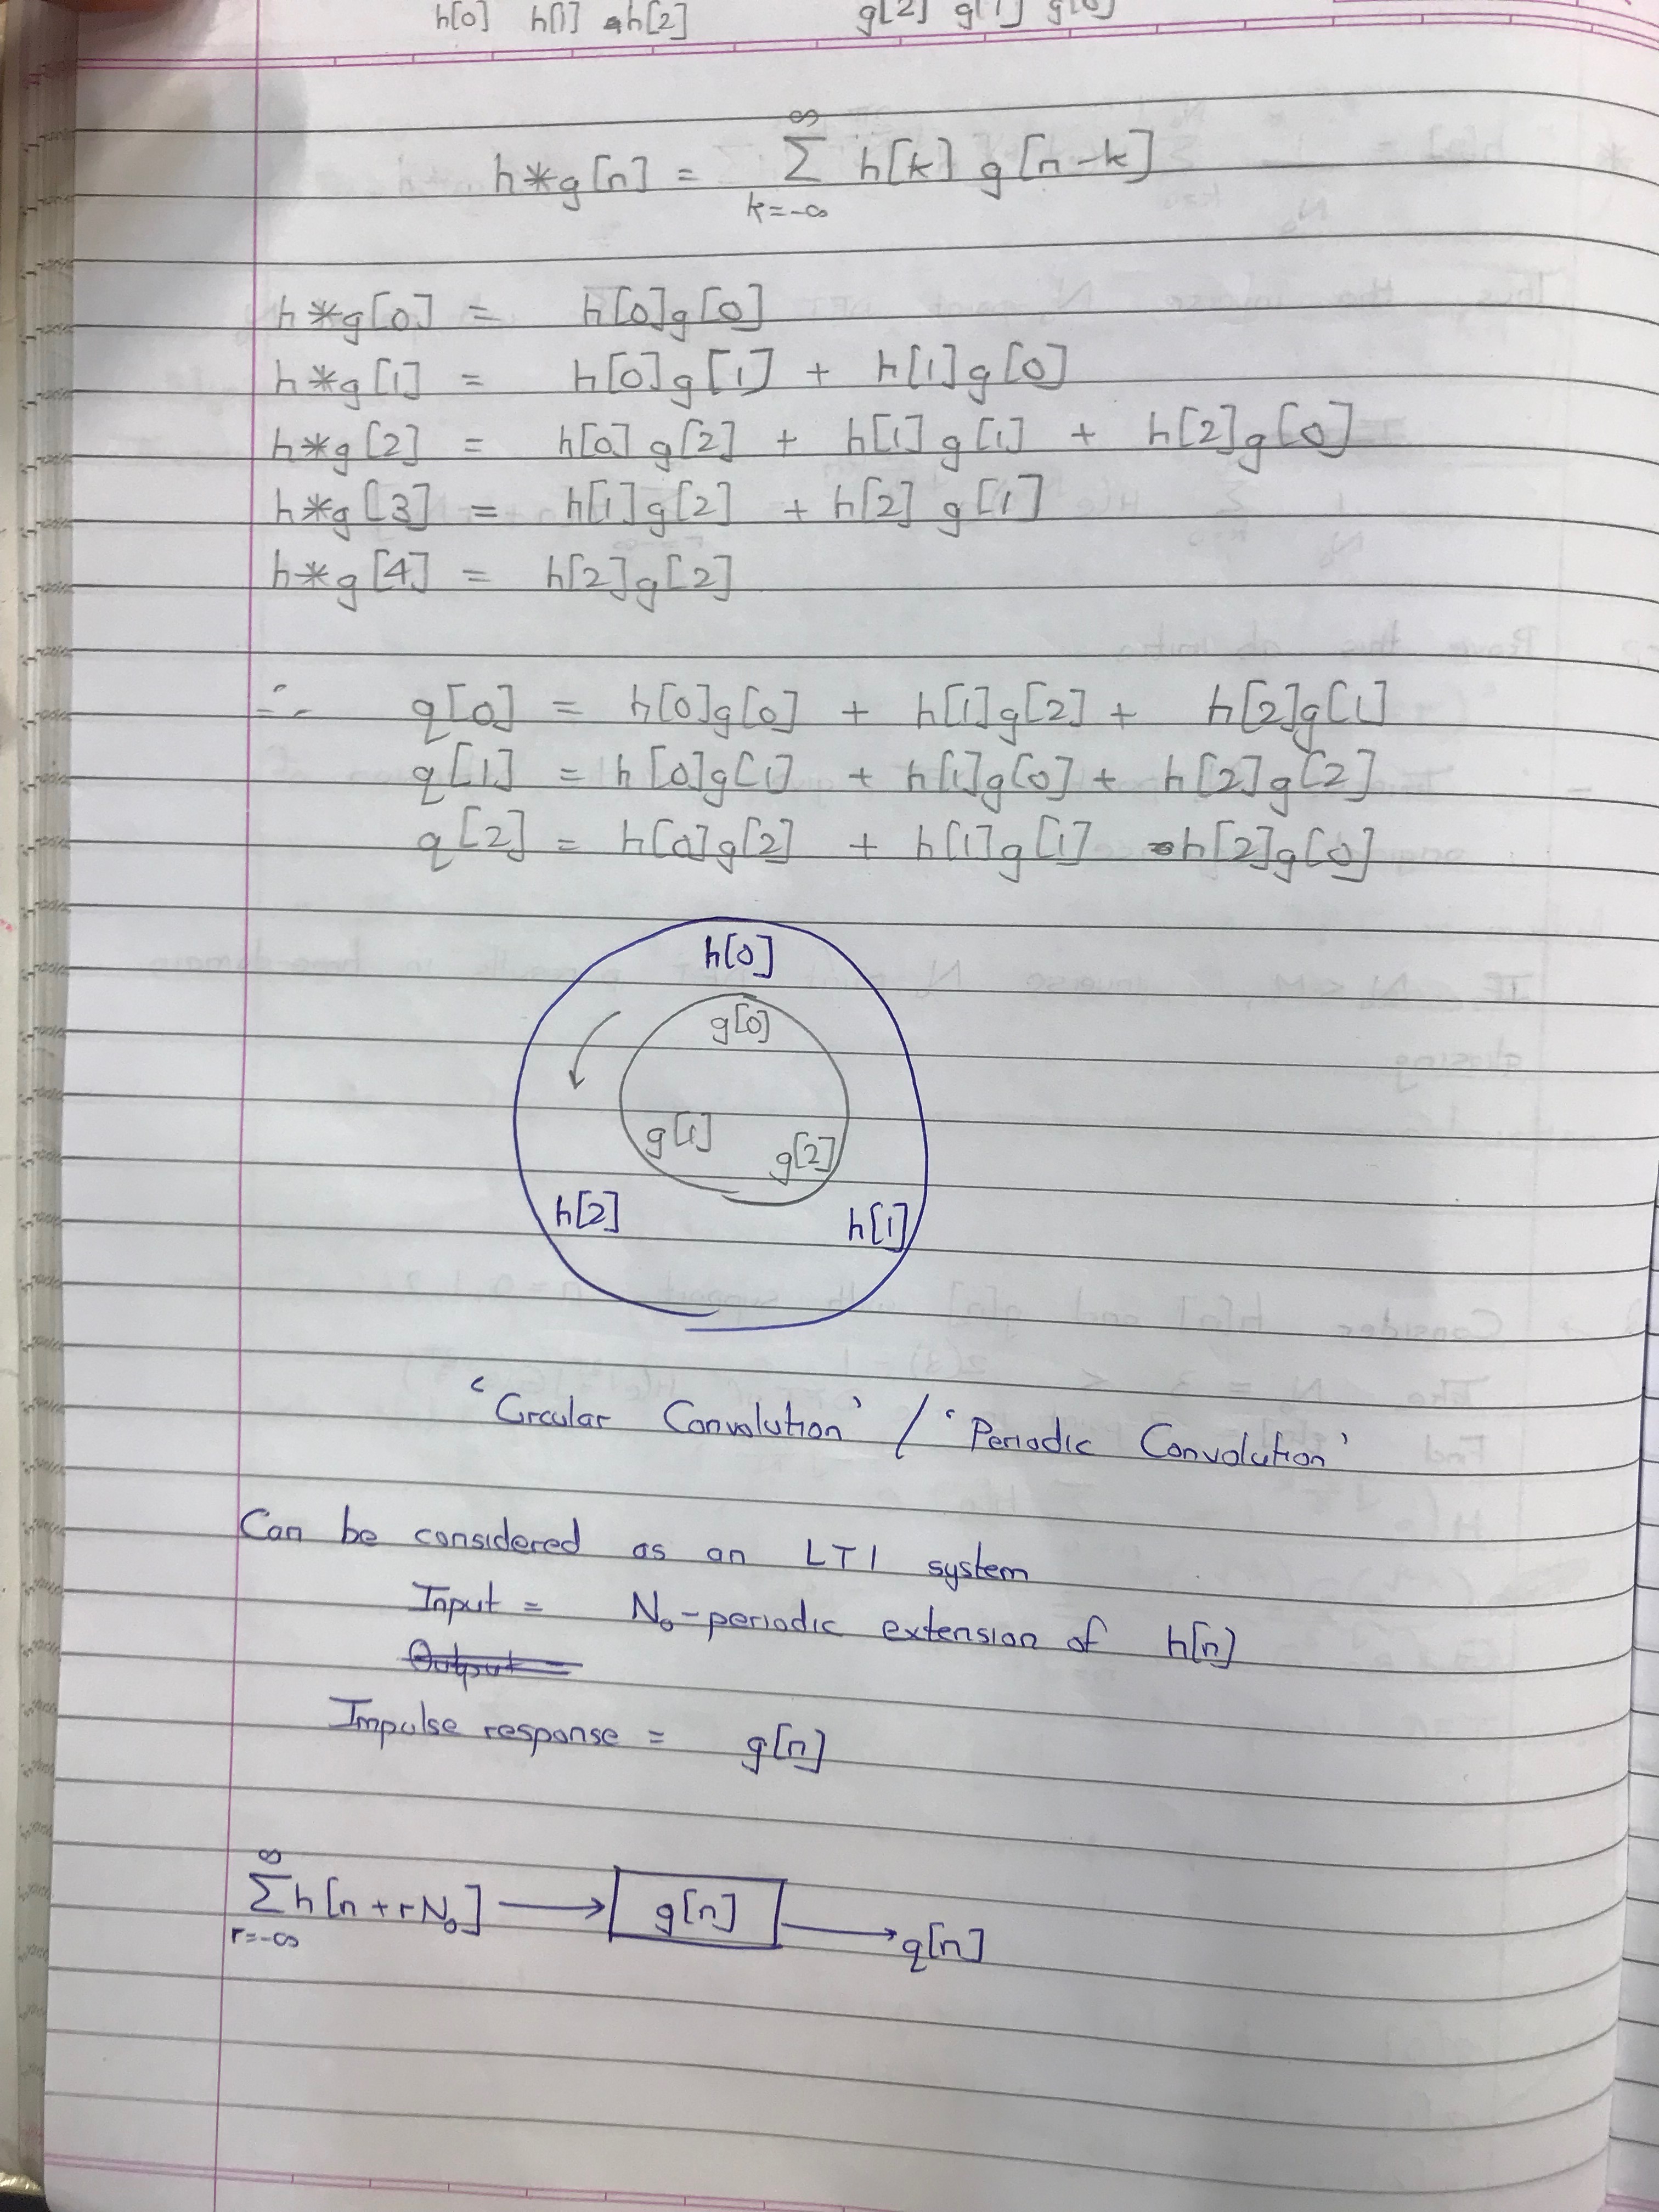 h[0] h[1] h[2] g[2] g[1] g[0]
h*g[n] = ∞ Σ k=-∞ h[k] g[n-k]
h*g[0] = h[0]g[0]
h*g[1] = h[0]g[1] + h[1]g[0]
h*g[2] = h[0]g[2] + h[1]g[1] + h[2]g[0]
h*g[3] = h[1]g[2] + h[2]g[1]
h*g[4] = h[2]g[2]
∴ q[0] = h[0]g[0] + h[1]g[2] + h[2]g[1]
q[1] = h[0]g[1] + h[1]g[0] + h[2]g[2]
q[2] = h[0]g[2] + h[1]g[1] h[2]g[0]
h[0]
g[0]
g[1] g[2]
h[2] h[1]
'Circular Convolution' / 'Periodic Convolution'
Can be considered as an LTI system
Input = N₀-periodic extension of h[n]
Output =
Impulse response = g[n]
∞ Σ r=-∞ h[n+rN₀] → g[n] → q[n]